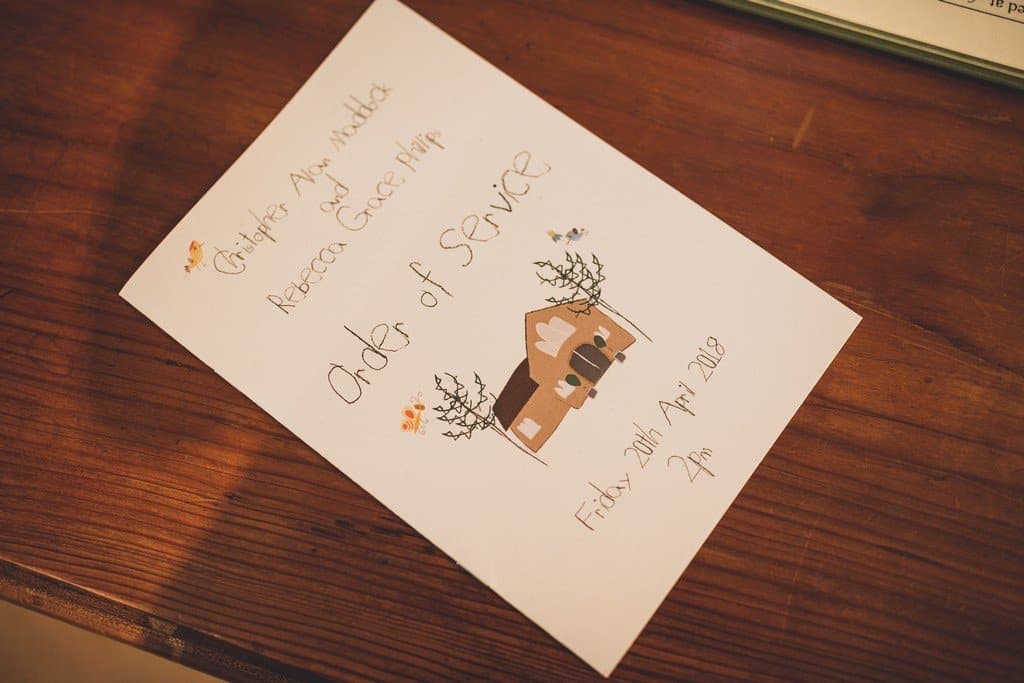 Christopher Alan Maddock
and
Rebecca Grace Phillips
Order of Service
Friday 20th April 2018
2pm
ed at